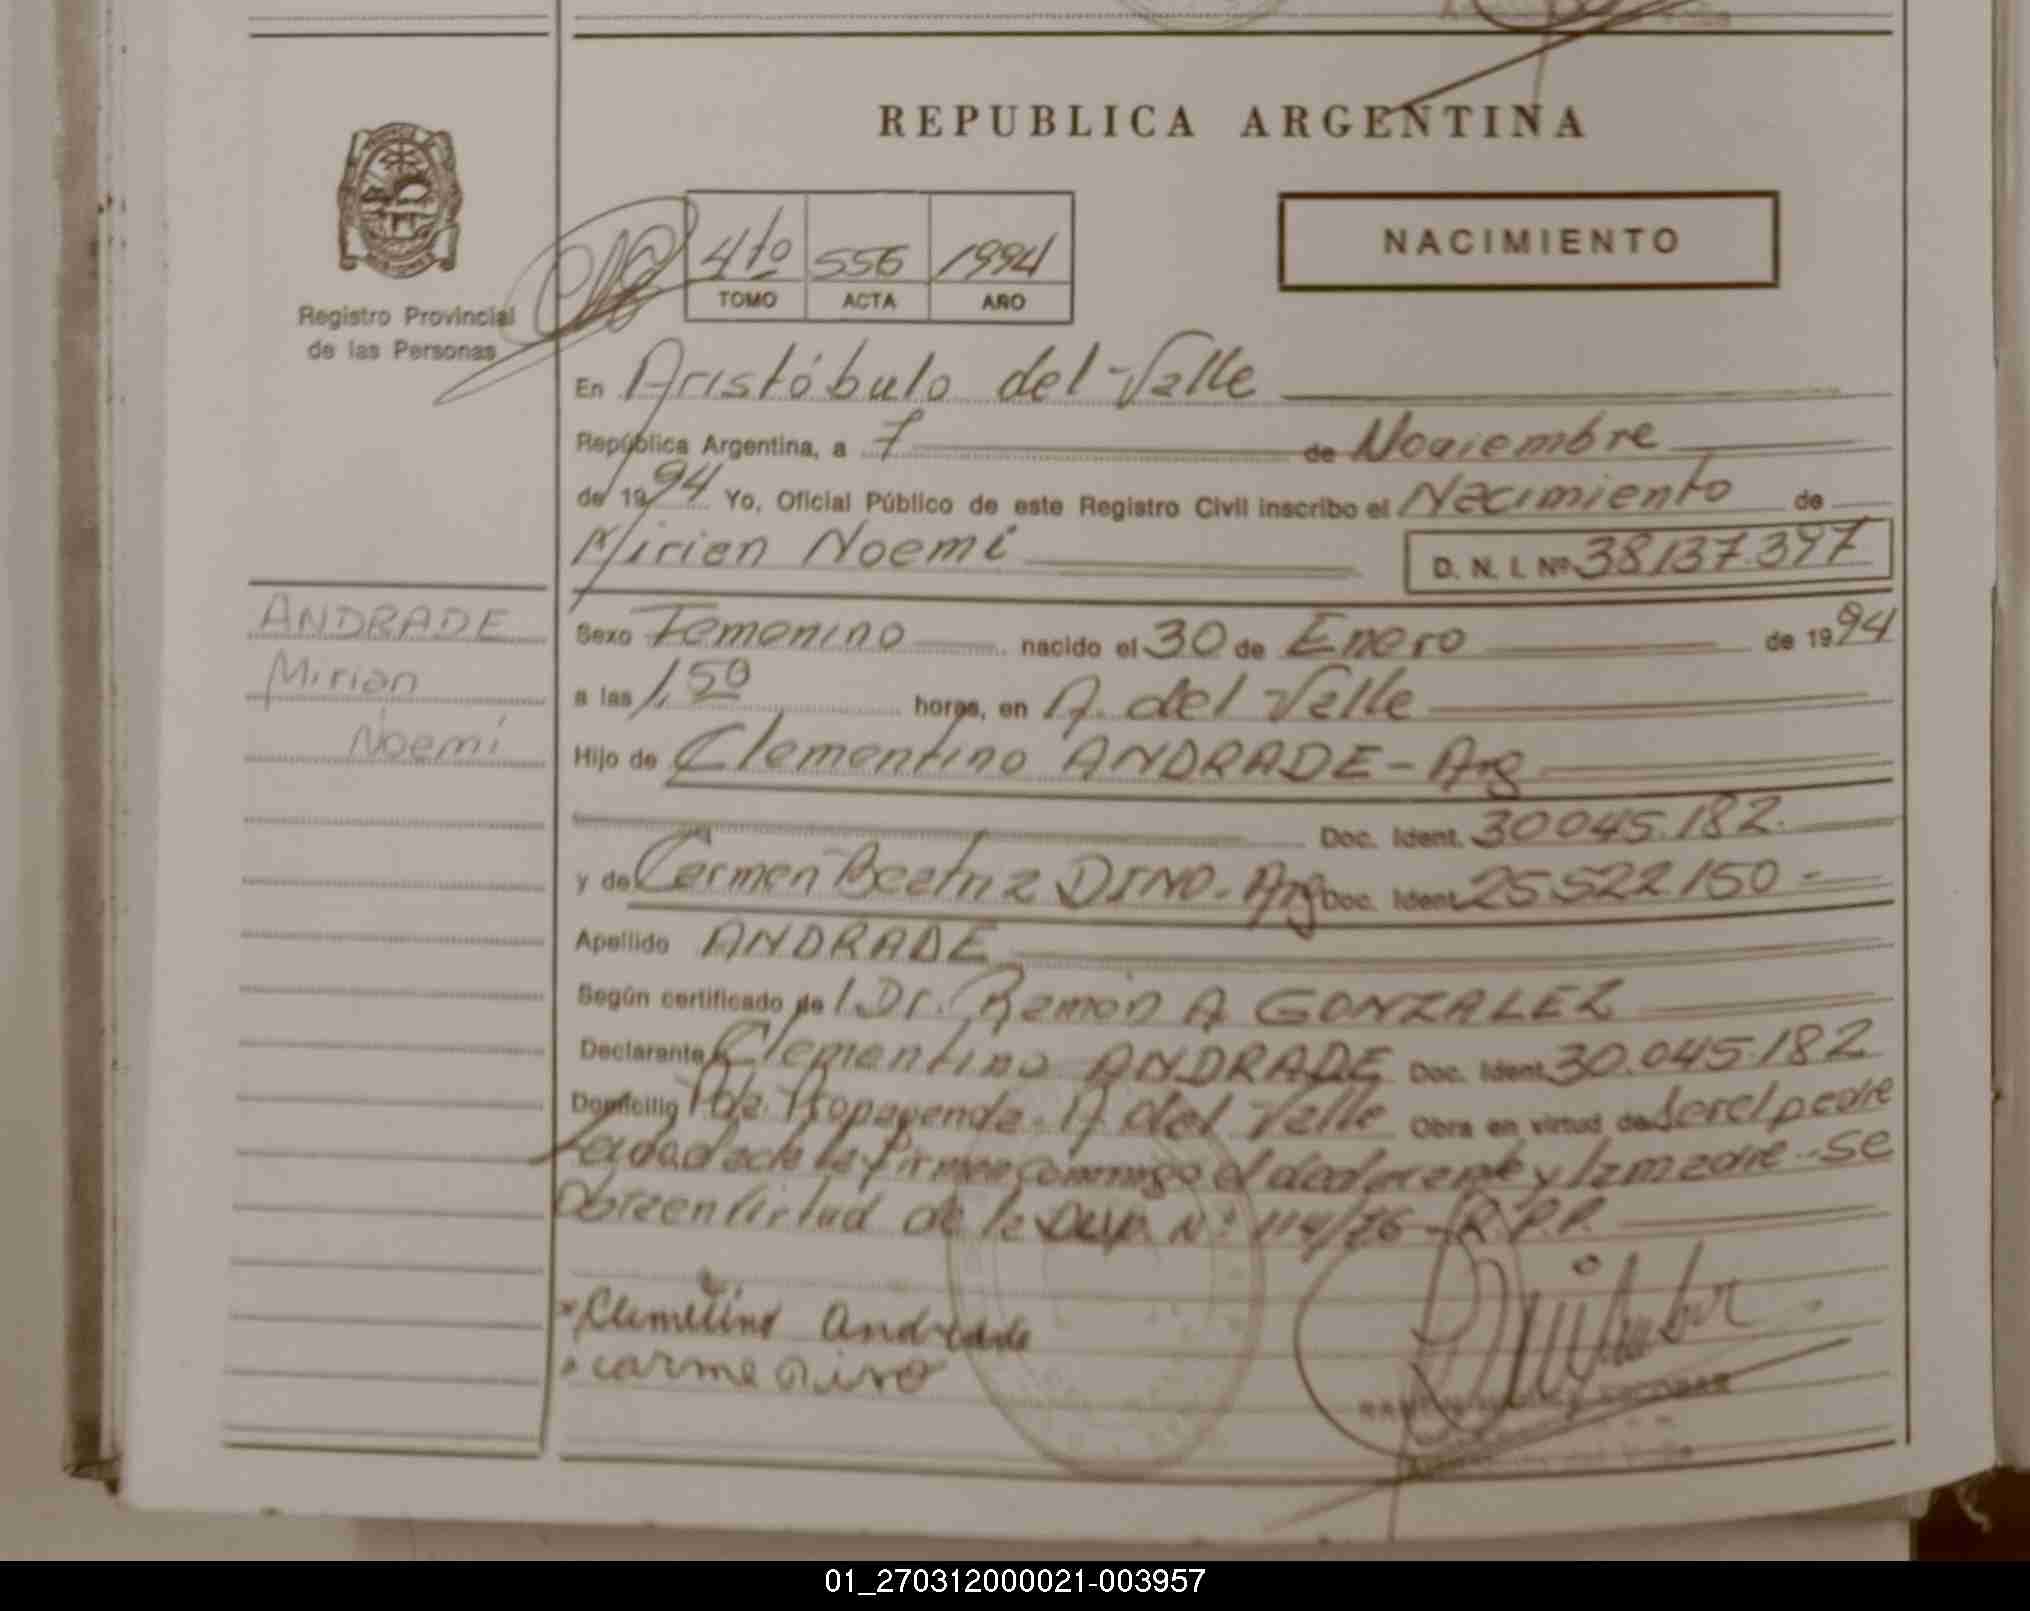 REPUBLICA ARGENTINA
NACIMIENTO
4to 556 1994
TOMO ACTA AÑO
Registro Provincial
de las Personas
En Aristóbulo del Valle
República Argentina, a 7 de Noviembre
de 1994 Yo, Oficial Público de este Registro Civil inscribo el Nacimiento de
Mirian Noemí D. N. I. Nº 38.137.397
ANDRADE
Mirian
Noemí
Sexo Femenino nacido el 30 de Enero de 1994
a las 1,50 horas, en A. del Valle
Hijo de Clementino ANDRADE - Arg
Doc. Ident. 30045.182.
y de Carmen Beatriz DINO - Arg Doc. Ident. 25522150 -
Apellido ANDRADE
Según certificado de l Dr. Ramón A GONZALEZ
Declarante Clementino ANDRADE Doc. Ident. 30.045.182
Domicilio Pda. Propaganda - A. del Valle Obra en virtud de ser el padre
Leída el acta la firman conmigo el declarante y la madre - se
Obra en Virtud de la Disp. Nº 114/76 - R.P.P.
Clemetino Andrade
carme Dino
01_270312000021-003957